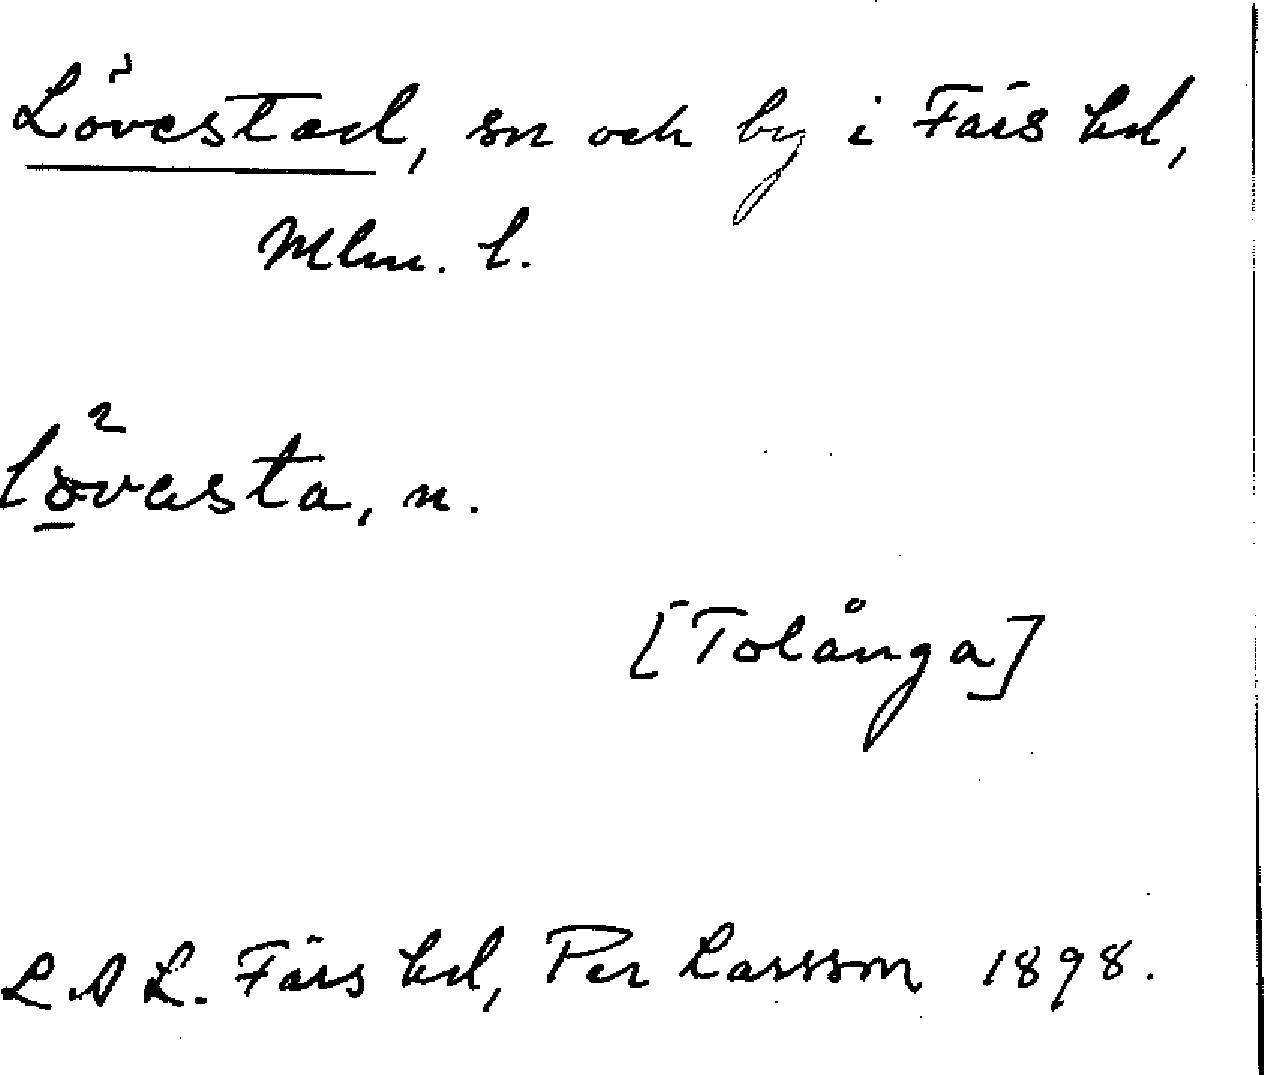 Lövestad, sn och by i Färs hd,
Mlm. l.
lövasta, n.
[Tolånga]
L A L. Färs hd, Per Larsson 1898.